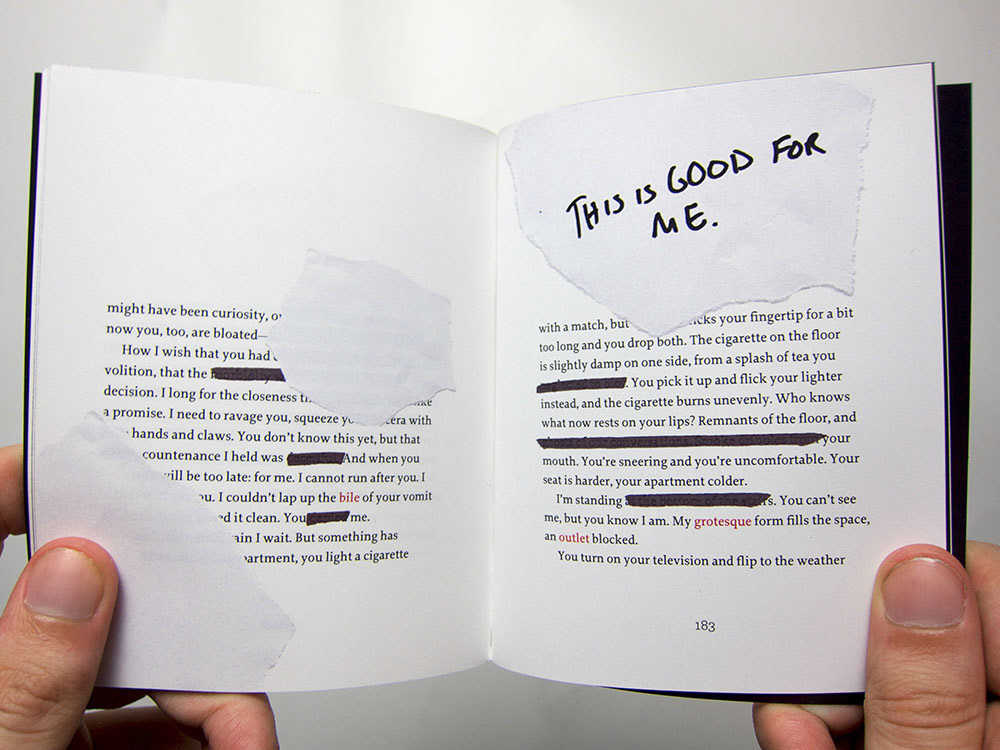 might have been curiosity, o
now you, too, are bloated—
How I wish that you had
volition, that the
decision. I long for the closeness
a promise. I need to ravage you, squeeze with
hands and claws. You don't know this yet, but that
countenance I held was And when you
will be too late: for me. I cannot run after you. I
ou. I couldn't lap up the bile of your vomit
ed it clean. You me.
ain I wait. But something has
partment, you light a cigarette
THIS IS GOOD FOR
ME.
with a match, but icks your fingertip for a bit
too long and you drop both. The cigarette on the floor
is slightly damp on one side, from a splash of tea you
. You pick it up and flick your lighter
instead, and the cigarette burns unevenly. Who knows
what now rests on your lips? Remnants of the floor, and
your
mouth. You're sneering and you're uncomfortable. Your
seat is harder, your apartment colder.
I'm standing . You can't see
me, but you know I am. My grotesque form fills the space,
an outlet blocked.
You turn on your television and flip to the weather
183